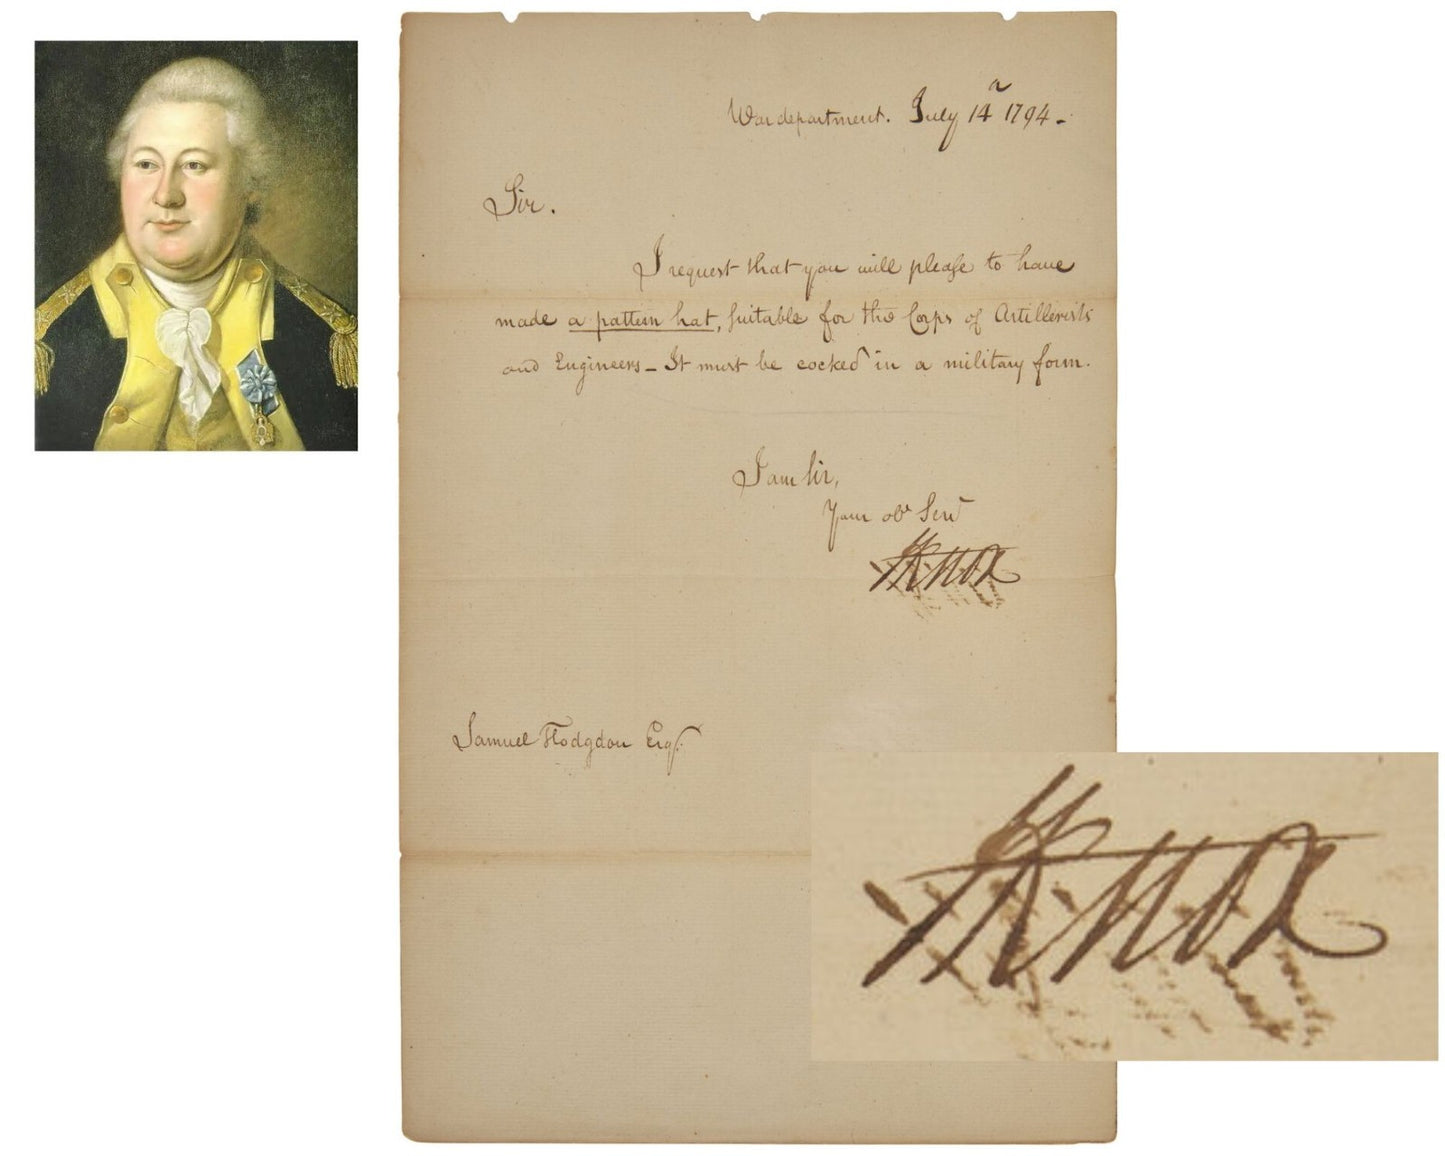 War department. July 14th 1794.
Sir.
I request that you will please to have
made a pattern hat, suitable for the Corps of Artillerists
and Engineers – It must be cocked in a military form.
I am Sir,
Your obt Servt
HKnox
Samuel Hodgdon Esqr.
HKnox